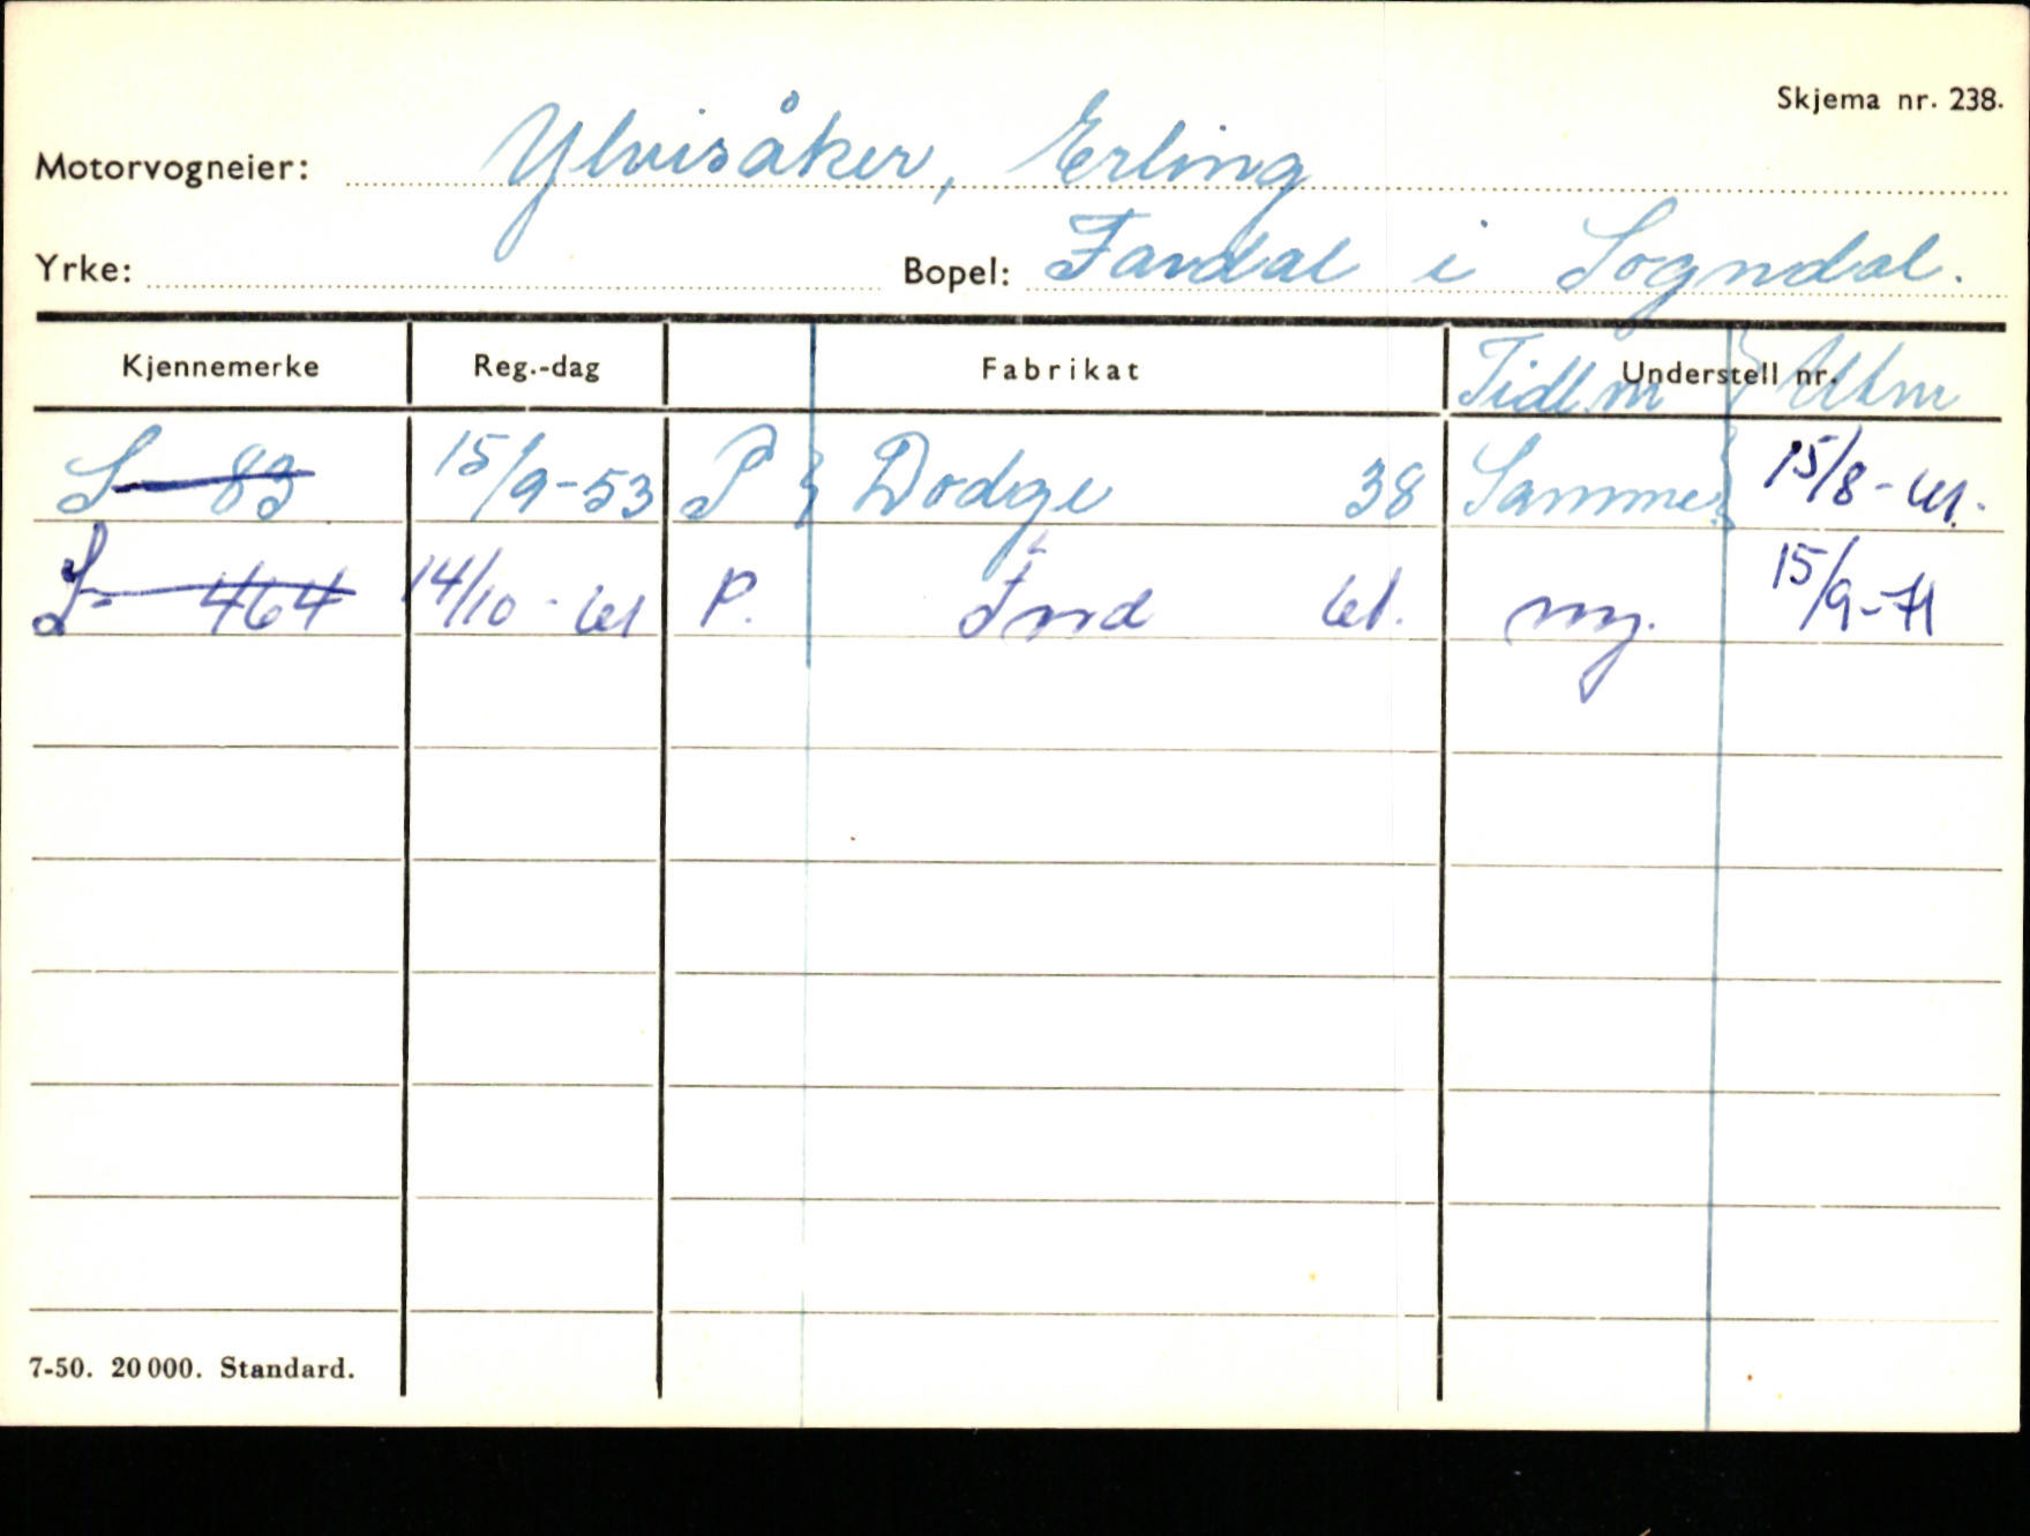 Skjema nr. 238.
Motorvogneier: Ylvisåker, Erling
Yrke: Bopel: Fardal i Sogndal.
Kjennemerke Reg.-dag Fabrikat Tidl. nr Understell nr.
S 83 15/9-53 P Dodge 38 Samme 15/8-61.
S- 464 14/10-61 P. Ford 61. ny. 15/9-71
7-50. 20 000. Standard.